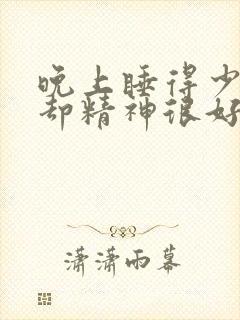 晚上睡得少
却精神很好
潇潇雨幕